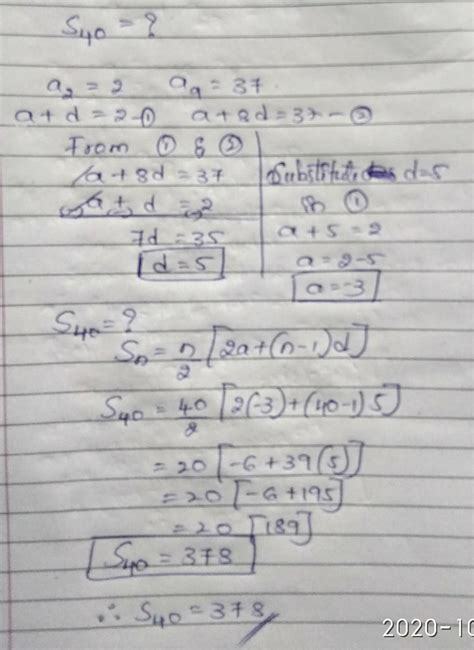 S₄₀ = ?
a₂ = 2 a₉ = 37
a + d = 2 - ① a + 8d = 37 - ②
From ① & ②
a + 8d = 37
a + d = 2
(-) (-) (-)
7d = 35
d = 5
Substitute d = 5
in ①
a + 5 = 2
a = 2 - 5
a = -3
S₄₀ = ?
Sₙ = n/2 [2a + (n-1)d]
S₄₀ = 40/2 [2(-3) + (40-1)5]
= 20 [-6 + 39(5)]
= 20 [-6 + 195]
= 20 [189]
S₄₀ = 378
∴ S₄₀ = 378
2020-10